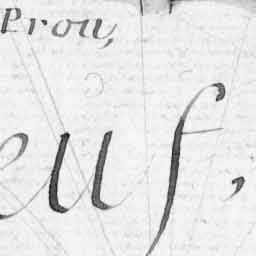 Prou,
euf,